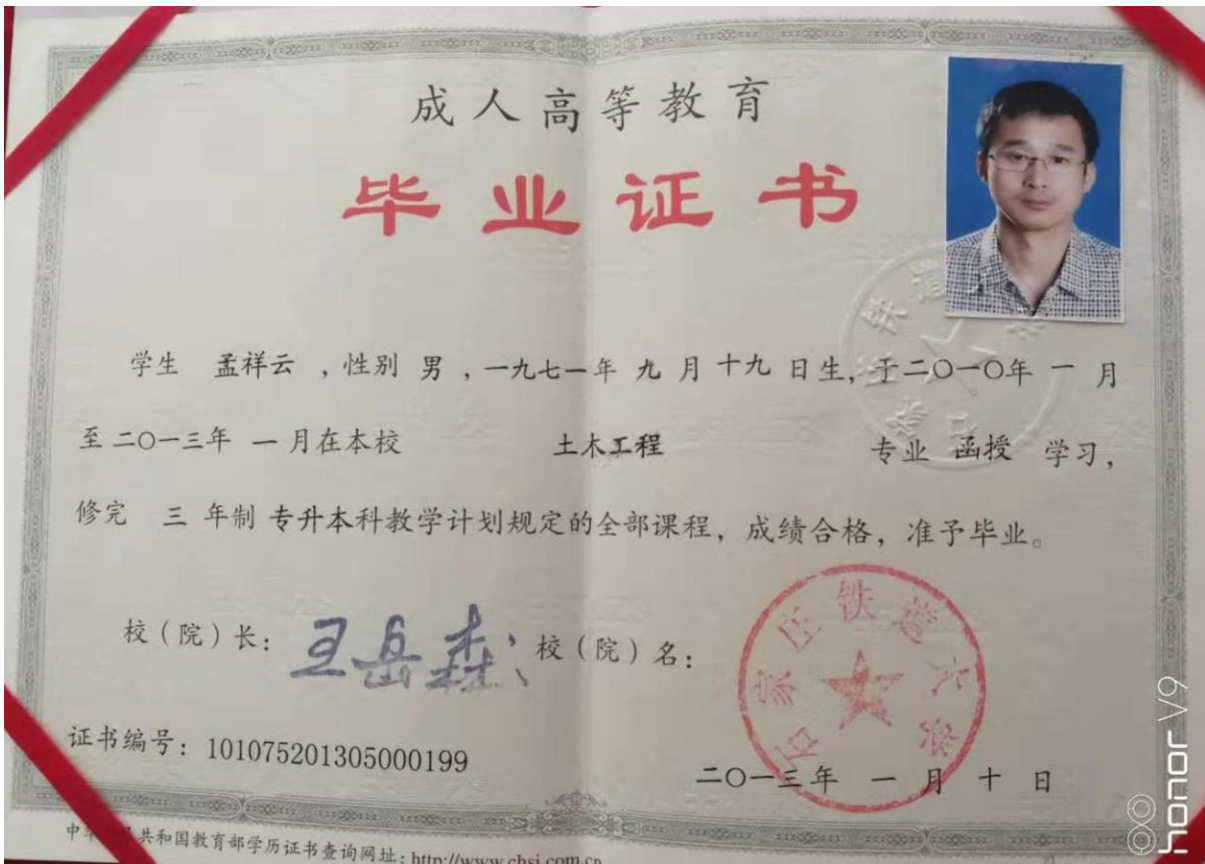 成人高等教育
毕业证书
学生 孟祥云 ,性别 男 ,一九七一年 九 月 十九 日生,于二〇一〇年 一 月
至二〇一三年 一 月在本校 土木工程 专业 函授 学习,
修完 三 年制 专升本科教学计划规定的全部课程,成绩合格,准予毕业。
校(院)长: 王岳森 校(院)名:
石家庄铁道大学
证书编号: 101075201305000199
二〇一三年 一 月 十 日
共和国教育部学历证书查询网址: http://www.chsi.com.cn
honor V9